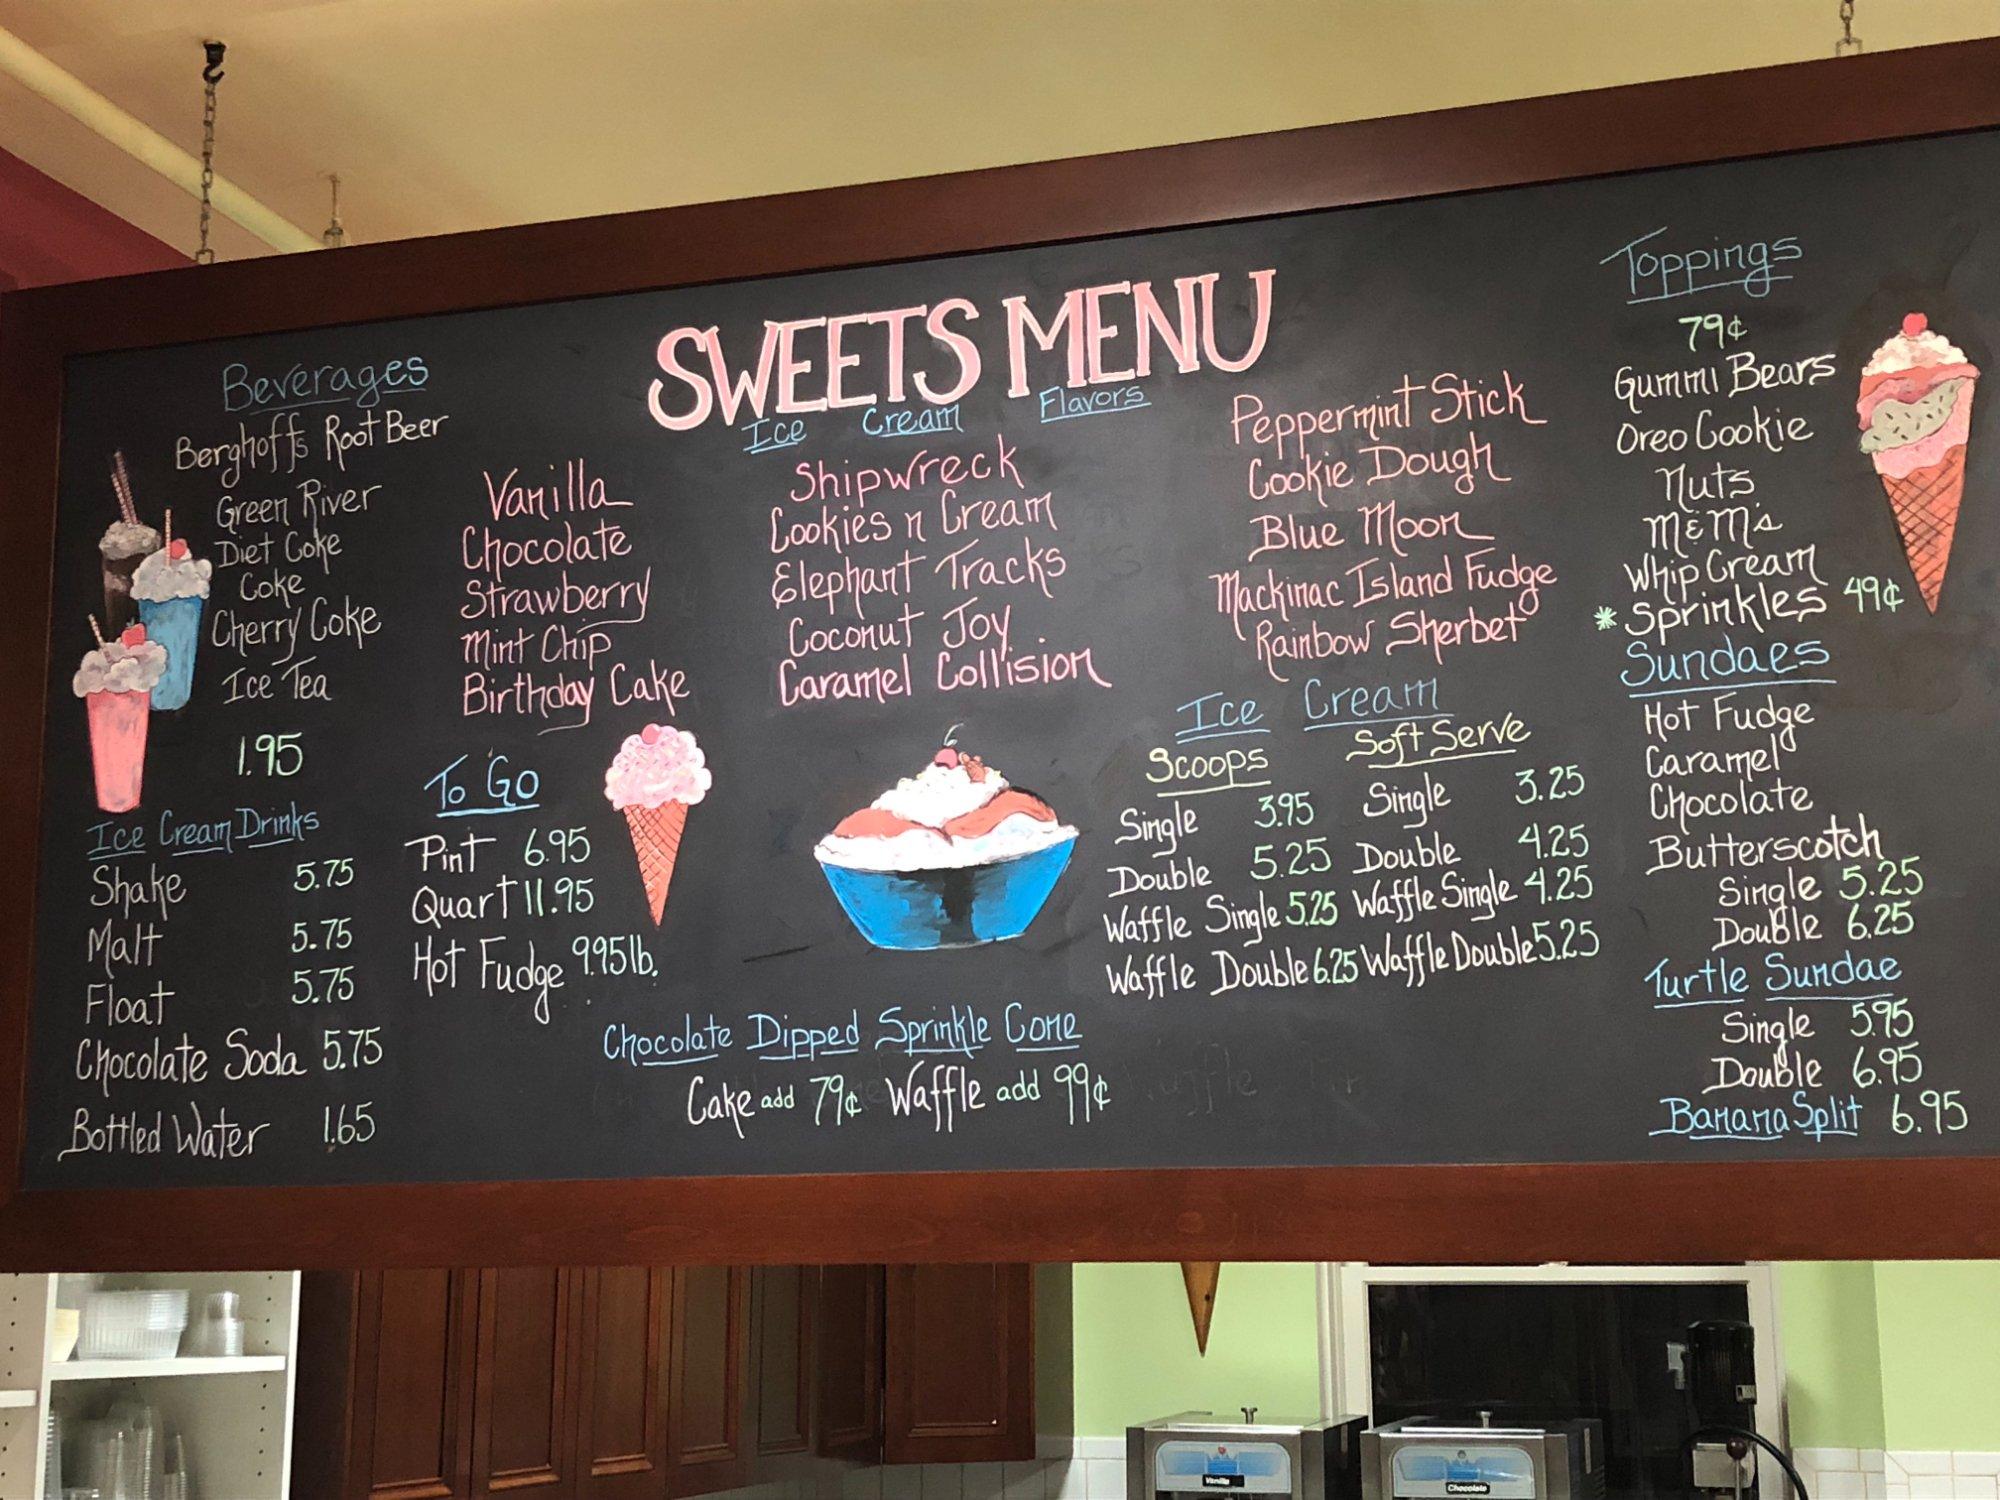 SWEETS MENU
Beverages
Berghoffs Root Beer
Green River
Diet Coke
Coke
Cherry Coke
Ice Tea
1.95
Ice Cream Drinks
Shake 5.75
Malt 5.75
Float 5.75
Chocolate Soda 5.75
Bottled Water 1.65
Ice Cream Flavors
Vanilla
Chocolate
Strawberry
Mint Chip
Birthday Cake
Shipwreck
Cookies n Cream
Elephant Tracks
Coconut Joy
Caramel Collision
Peppermint Stick
Cookie Dough
Blue Moon
Mackinac Island Fudge
Rainbow Sherbet
To Go
Pint 6.95
Quart 11.95
Hot Fudge 9.95 lb.
Chocolate Dipped Sprinkle Cone
Cake add 79¢ Waffle add 99¢
Ice Cream
Scoops
Single 3.95
Double 5.25
Waffle Single 5.25
Waffle Double 6.25
Soft Serve
Single 3.25
Double 4.25
Waffle Single 4.25
Waffle Double 5.25
Toppings
79¢
Gummi Bears
Oreo Cookie
Nuts
M&M's
Whip Cream
* Sprinkles 49¢
Sundaes
Hot Fudge
Caramel
Chocolate
Butterscotch
Single 5.25
Double 6.25
Turtle Sundae
Single 5.95
Double 6.95
Banana Split 6.95
Vanilla
Chocolate